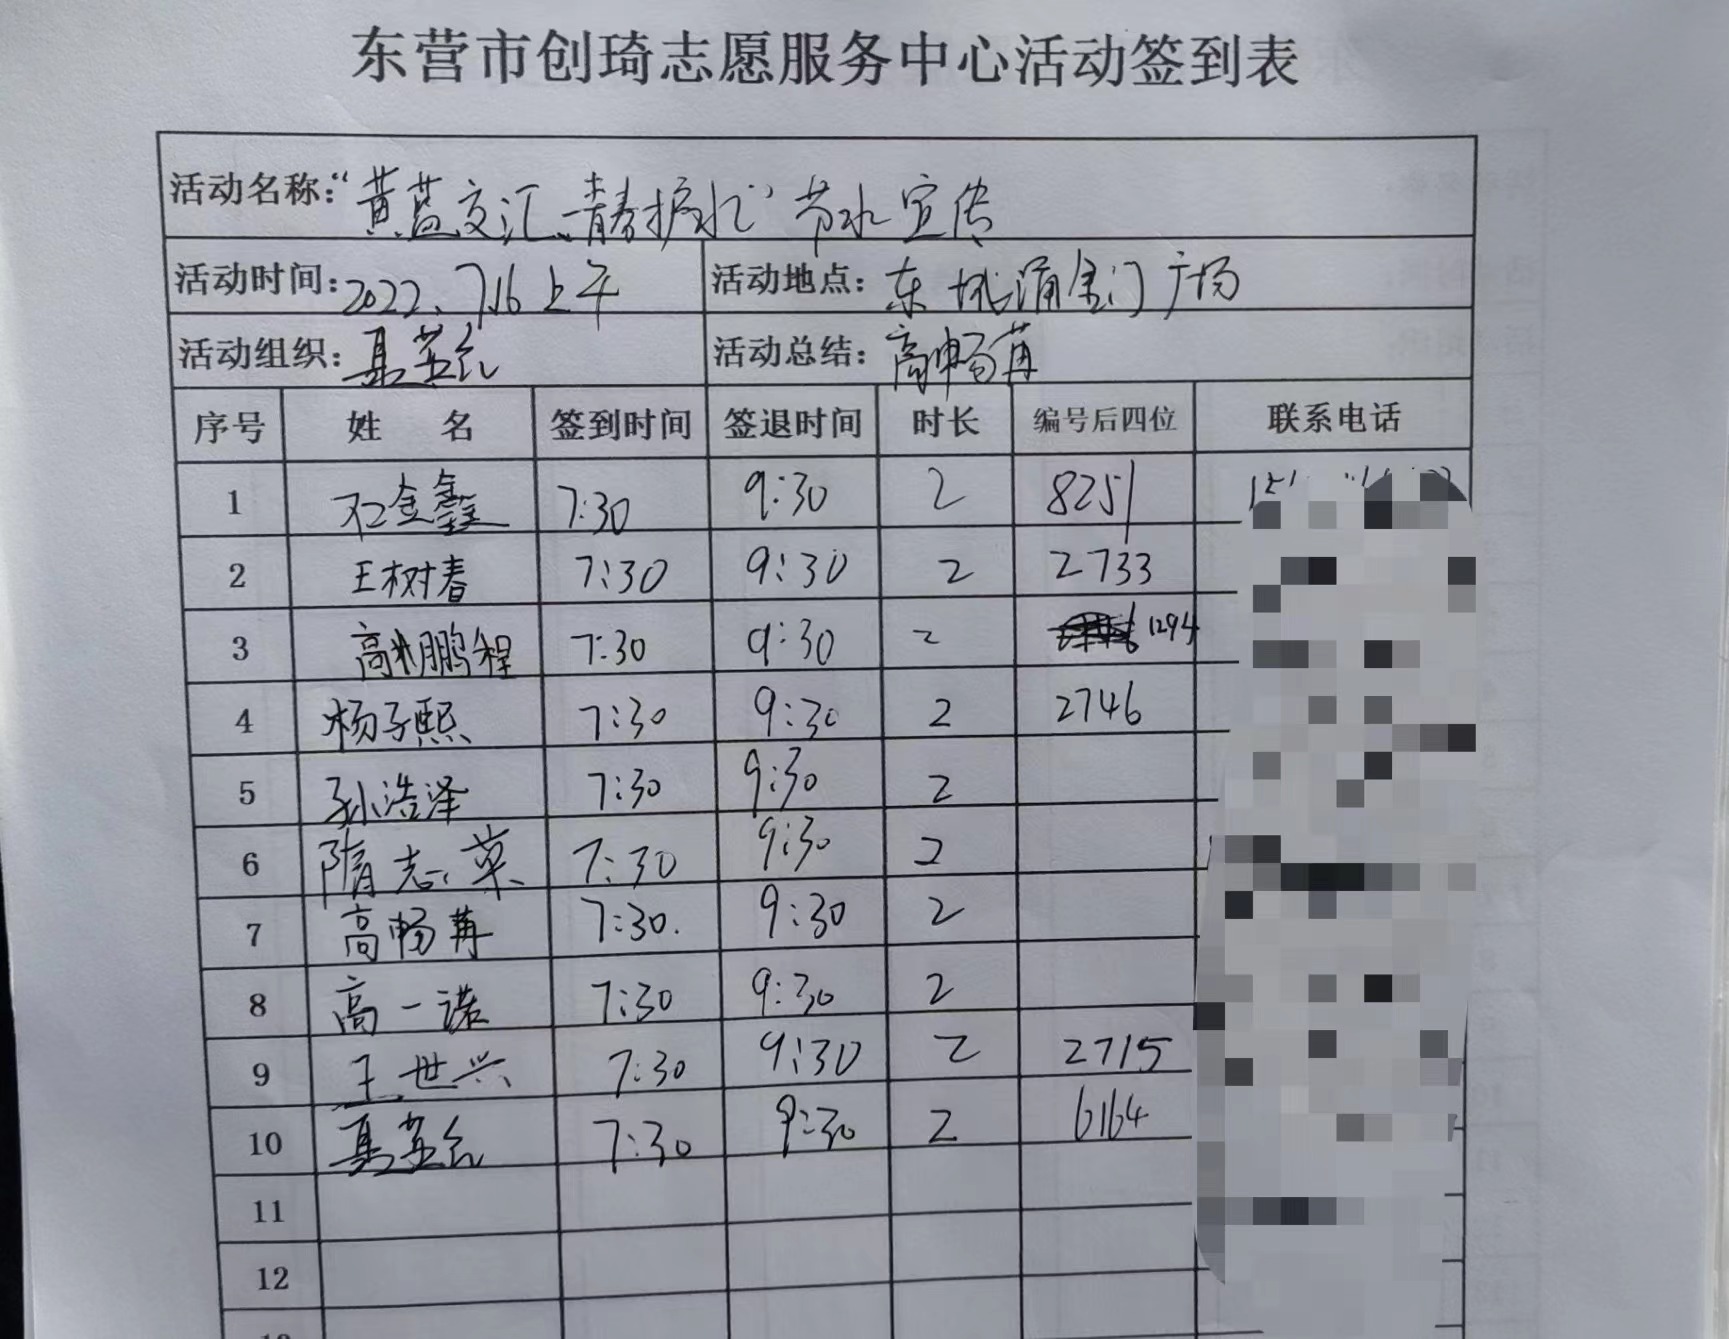 东营市创琦志愿服务中心活动签到表
活动名称：“黄蓝交汇、青春护水”节水宣传
活动时间：2022、7.16上午 活动地点：东城涌金门广场
活动组织：聂英 活动总结：高畅苒
序号 姓 名 签到时间 签退时间 时长 编号后四位 联系电话
1 石金鑫 7:30 9:30 2 8251
2 王树春 7:30 9:30 2 2733
3 高鹏程 7:30 9:30 2 1294
4 杨子熙 7:30 9:30 2 2746
5 孙浩泽 7:30 9:30 2
6 隋志菜 7:30 9:30 2
7 高畅苒 7:30. 9:30 2
8 高一诺 7:30 9:30 2
9 王世兴 7:30 9:30 2 2715
10 聂英 7:30 9:30 2 6164
11
12